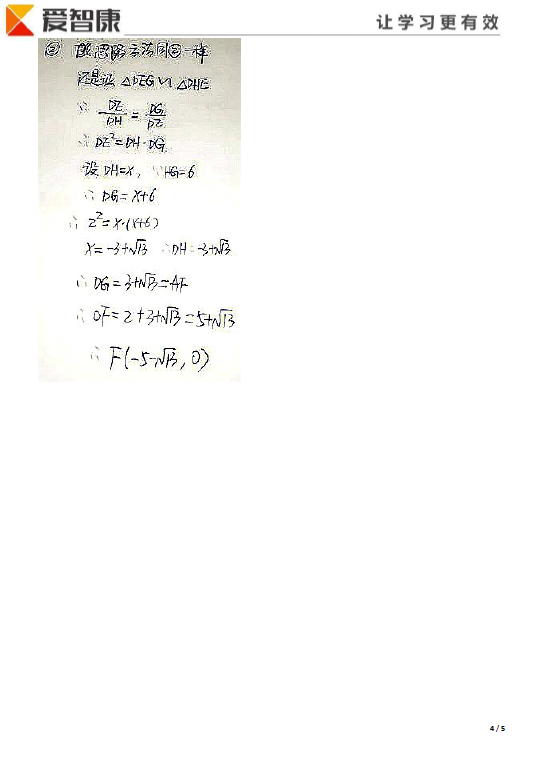 爱智康
让学习更有效
② 思路方法同②一样
还是证 △DEG∽△DHE
∴ DE/DH = DG/DE
∴ DE²=DH·DG
设DH=x, ∵HG=6
∴ DG=x+6
∴ 2²=x·(x+6)
x=-3+√13 ∴DH=-3+√13
∴ DG=3+√13=AF
∴ OF=2+3+√13=5+√13
∴ F(-5-√13,0)
4 / 5